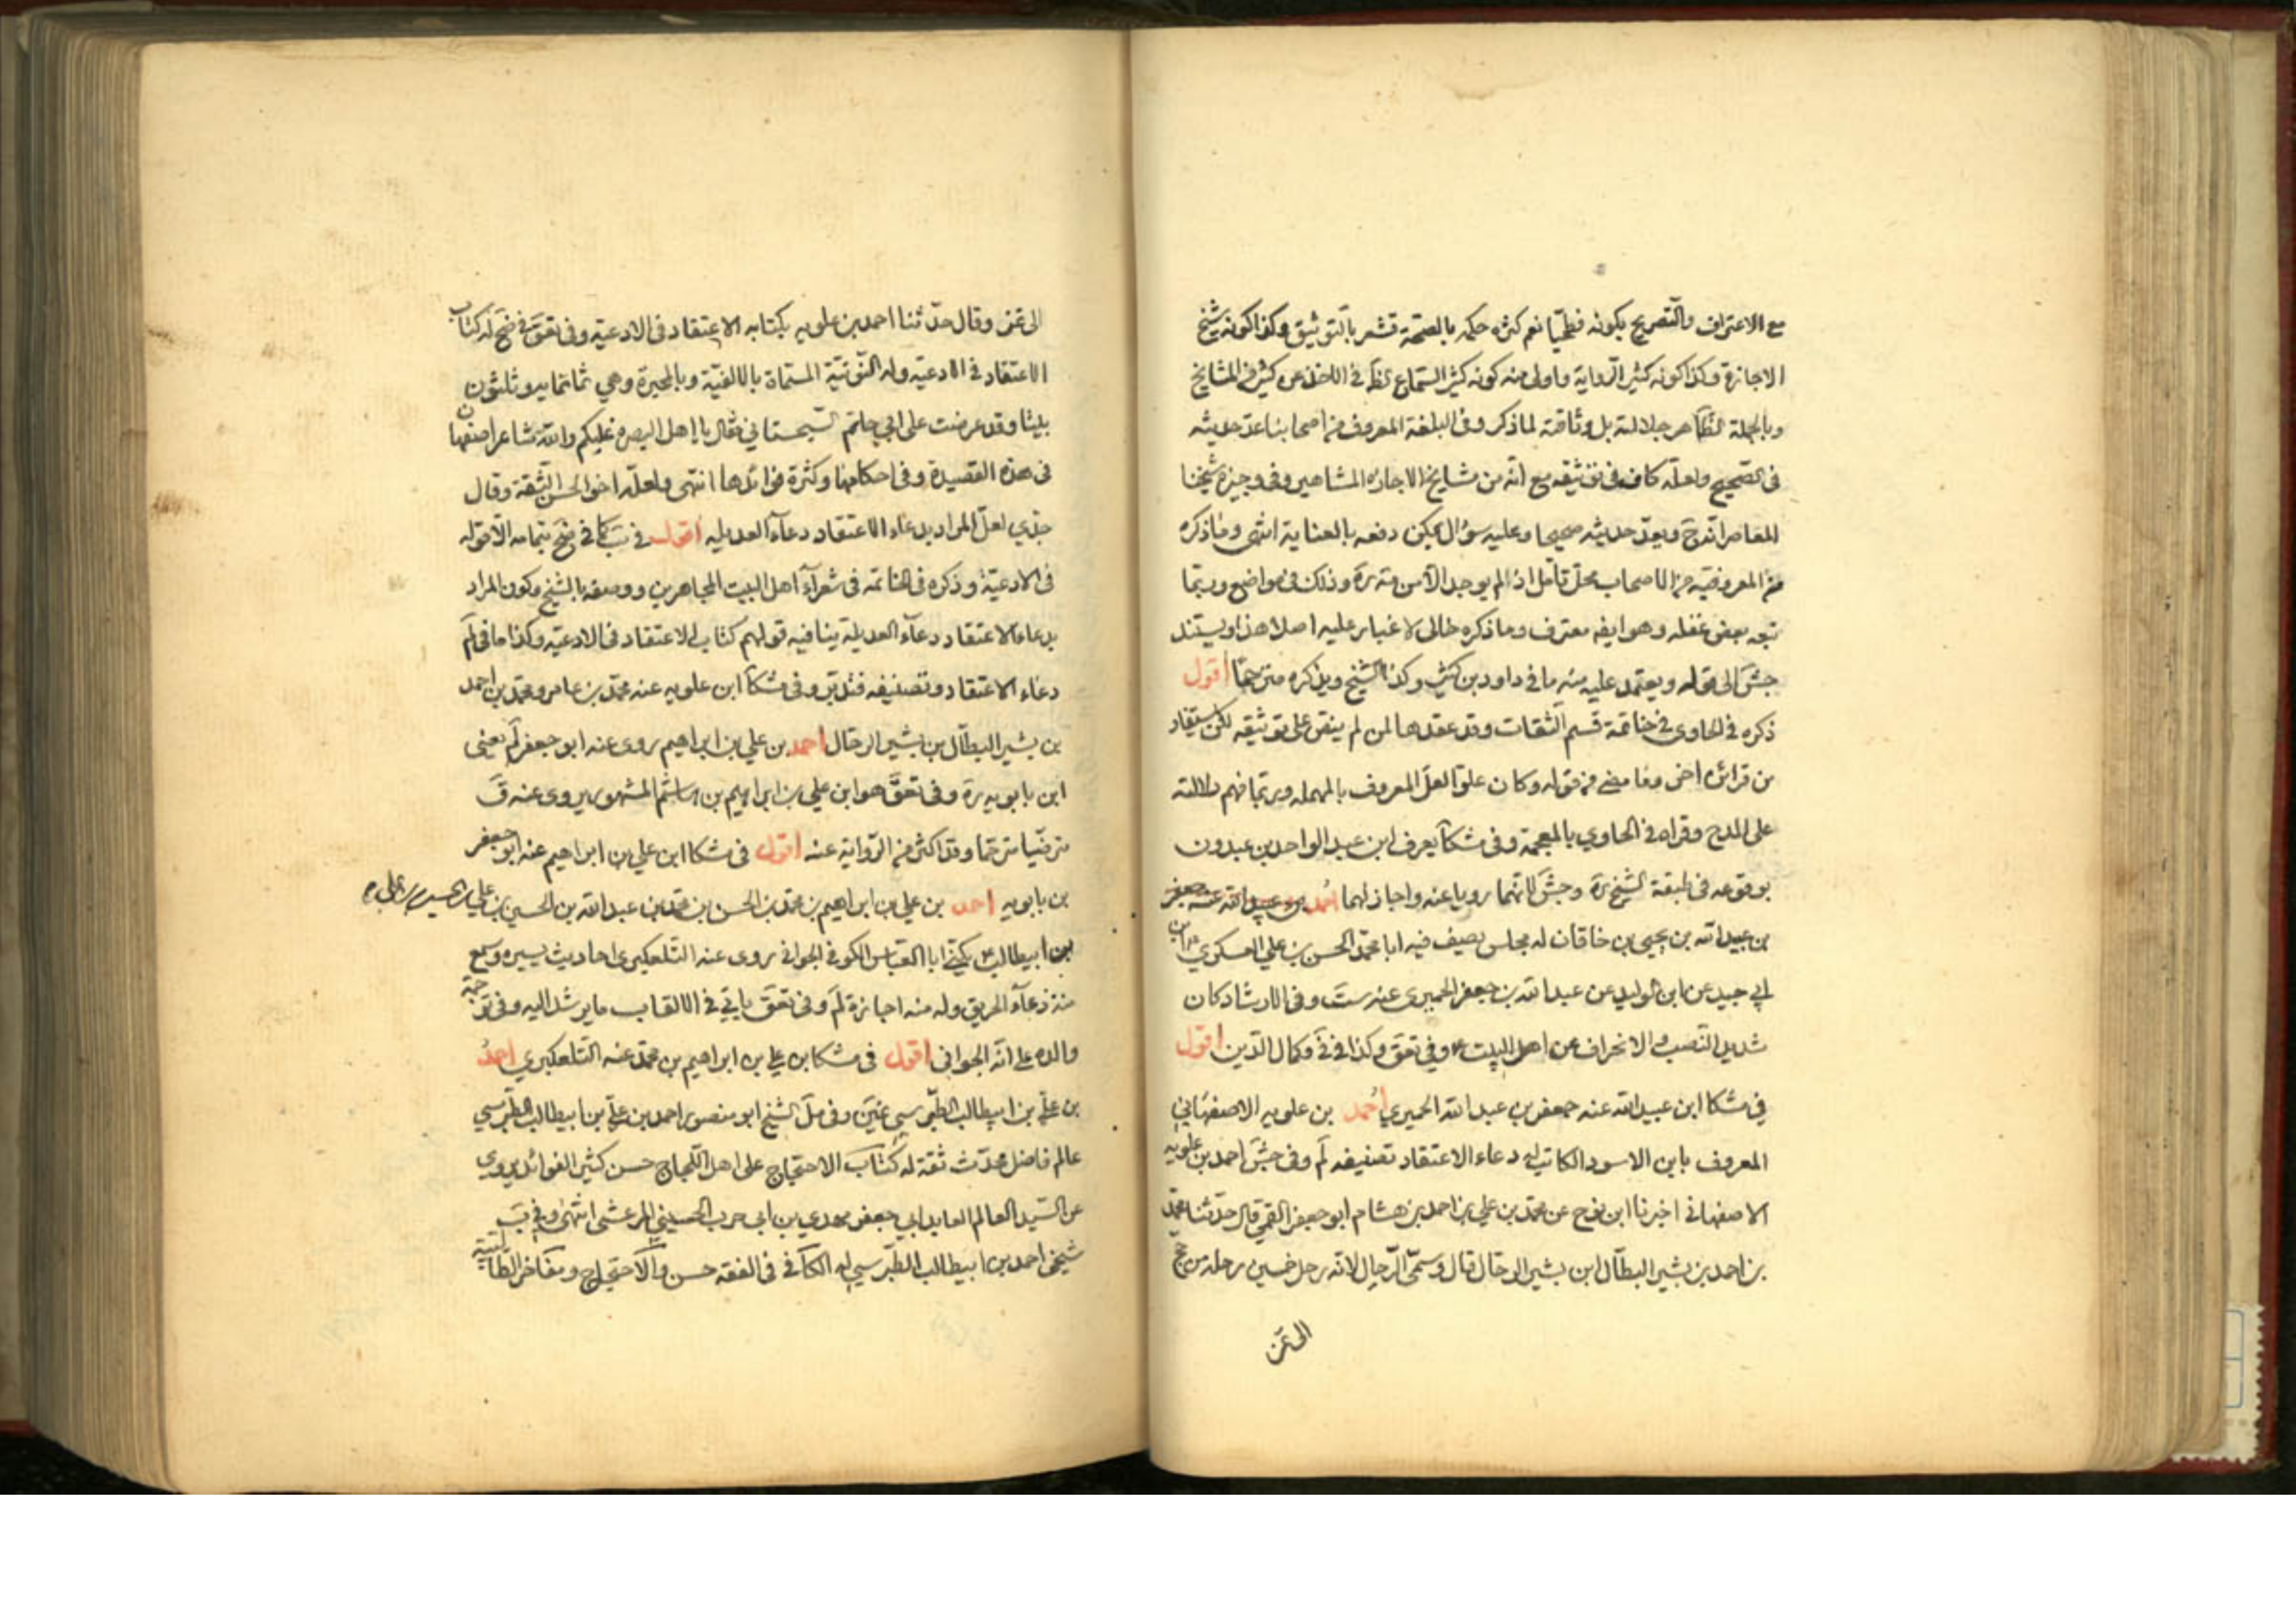 مع الاعتراف والتصريح بكونه فطحيّا نعم كثرة حكمه بالصحّة تشعر بالتوثيق وكذا كونه شيخ
الاجازة وكذا كونه كثير الرواية واولى منه كونه كثير السّماع الظّ في الاخذ عن كثير من المشايخ
وبالجملة الظّاهر جلالته بل وثاقته لما ذكر وفي البلغة المعروف من اصحابنا عدّ حديثه
في الصّحيح ولعلّه كاف في توثيقه مع انّه من مشايخ الاجازة المشاهير وفي وجيزة شيخنا
المعاصر انّه ح ويعدّ حديثه صحيحا وعليه سؤال يمكن دفعه بالعناية انتهى وما ذكره
من المعروفيّة من الاصحاب محلّ تأمّل اذ لم يوجد الّا من مة ره وذلك في مواضع وربّما
تبعه بعض غفلة وهو ايضه معترف وما ذكره خالى لا غبار عليه اصلا هذا ويستند
جش الى قوله ويعتمد عليه منه ما في داود بن كثير وكذا الشيخ ويذكره مترحّما أقول
ذكره في الحاوى في خاتمة قسم الثقات وقد عقدها لمن لم ينصّ على توثيقه لكن يستفاد
من قرائن اخر وغامض من قوله وكان علوّا لعلّ المعروف بالمهملة وربّما فهم دلالته
على المدح وقراه في الحاوي بالمعجمة وفي مشكا يعرف ابن عبد الواحد بن عبدون
بوقوعه في طبقة الشيخ ره وجش لانّهما رويا عنه واجاز لهما أحمد بن عبيد الله عنه جعفر
بن عبيد الله بن يحيى بن خاقان له مجلس يصف فيه ابا محمّد الحسن بن علي العسكري ع ابن
ابي جيد عن ابن الوليد عن عبد الله بن جعفر الحميرى عنه ست وفي الارشاد كان
شديد النّصب والانحراف عن اهل البيت ع وفي تعق وكذا في في وكمال الدّين اقول
في مشكا ابن عبيد الله عنه جعفر بن عبد الله الحميري أحمد بن علويه الاصفهاني
المعروف بابن الاسود الكاتب له دعاء الاعتقاد تصنيفه لم وفي جش احمد بن علويه
الاصفهاني اخبرنا ابن نوح عن محمّد بن علي بن احمد بن هشام ابو جعفر القمي قال حدّثنا محمّد
بن احمد بن بشير البطّال ابن بشير الرحّال قال وسمّى الرّحال لانّه رحل خمسين رحلة من حج
الى غز
الى غز وقال حدّثنا احمد بن علويه بكتابه الاعتقاد في الادعية وفي تعق في ضح له كتاب
الاعتقاد في الادعيّة وله النّونيّة المسمّاة بالالفيّة وبالمحبرة وهي ثمانمايه وثلثون
بيتا وقد عرضت على ابي حاتم السّجستاني فقال يا اهل البصره غلبكم والله شاعر اصفهان
في هذه القصيدة وفي احكامها وكثرة فوائدها انتهى ولعلّه اخو الحسن الثّقة وقال
جدّي لعلّ المراد بدعاء الاعتقاد دعاء العديله أقول في ب كما في ضح بتمامه الّا قوله
في الادعيّة وذكره في الخاتمة في شعراء اهل البيت المجاهرين ووصفه بالشيخ وكون المراد
بدعاء الاعتقاد دعاء العديلة ينافيه قولهم كتاب الاعتقاد في الادعيّة وكذا ما في لم
دعاء الاعتقاد وتصنيفه فتدبّر وفي مشكا ابن علويه عنه محمّد بن عامر ومحمّد بن احمد
بن بشير البطّال بن بشير الرحّال أحمد بن علي بن ابراهيم روى عنه ابو جعفر لم يعنى
ابن بابويه ره وفي تعق هو ابن علي بن ابراهيم بن هاشم المشهور يروى عنه ق
مترضّيا مترحّما وقد اكثر من الرّواية عنه اقول في مشكا ابن علي بن ابراهيم عنه ابو جعفر
بن بابويه احمد بن علي بن ابراهيم بن محمّد بن الحسن بن محمّد بن عبد الله بن الحسين بن علي بن الحسين بن علي ع
بن ابيطالب ع يكنّى ابا العبّاس الكوفي الجواني روى عنه التّلعكبرى احاديث يسيره وسمع
منه دعاء الحريق وله منه اجازة لم وفي تعق ياتي في الالقاب ما يرشد اليه وفي ترجمة
والده علي انّه الجواني أقول في مشكا بن علي بن ابراهيم بن محمّد عنه التّلعكبري أحمد
بن عليّ بن ابيطالب الطّبرسي غير وفي مل الشيخ ابو منصور احمد بن عليّ بن ابيطالب الطّبرسي
عالم فاضل محدّث ثقة له كتاب الاحتجاج على اهل اللّجاج حسن كثير الفوائد يروى
عن السّيد العالم العابد ابي جعفر مهدي بن ابى حرب الحسيني المرعشى انتهى وفي ب
شيخى احمد بن ابيطالب الطّبرسي له الكافي في الفقه حسن والاحتجاج ومفاخر الطّالبيّة